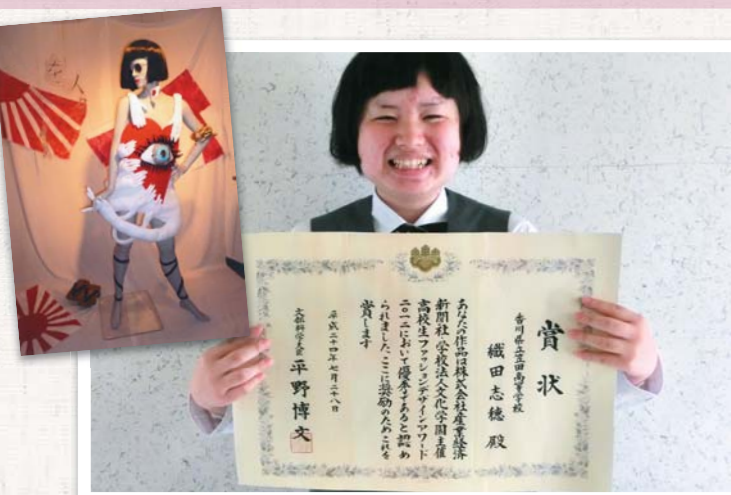 賞状
香川県立笠田高等学校
織田志穂殿
あなたの作品は株式会社産業経済
新聞社・学校法人文化学園主催
高校生ファッションデザインアワード
二〇一二において優秀であると認め
られました ここに奨励のためこれを
賞します
平成二十四年七月二十八日
文部科学大臣 平野博文